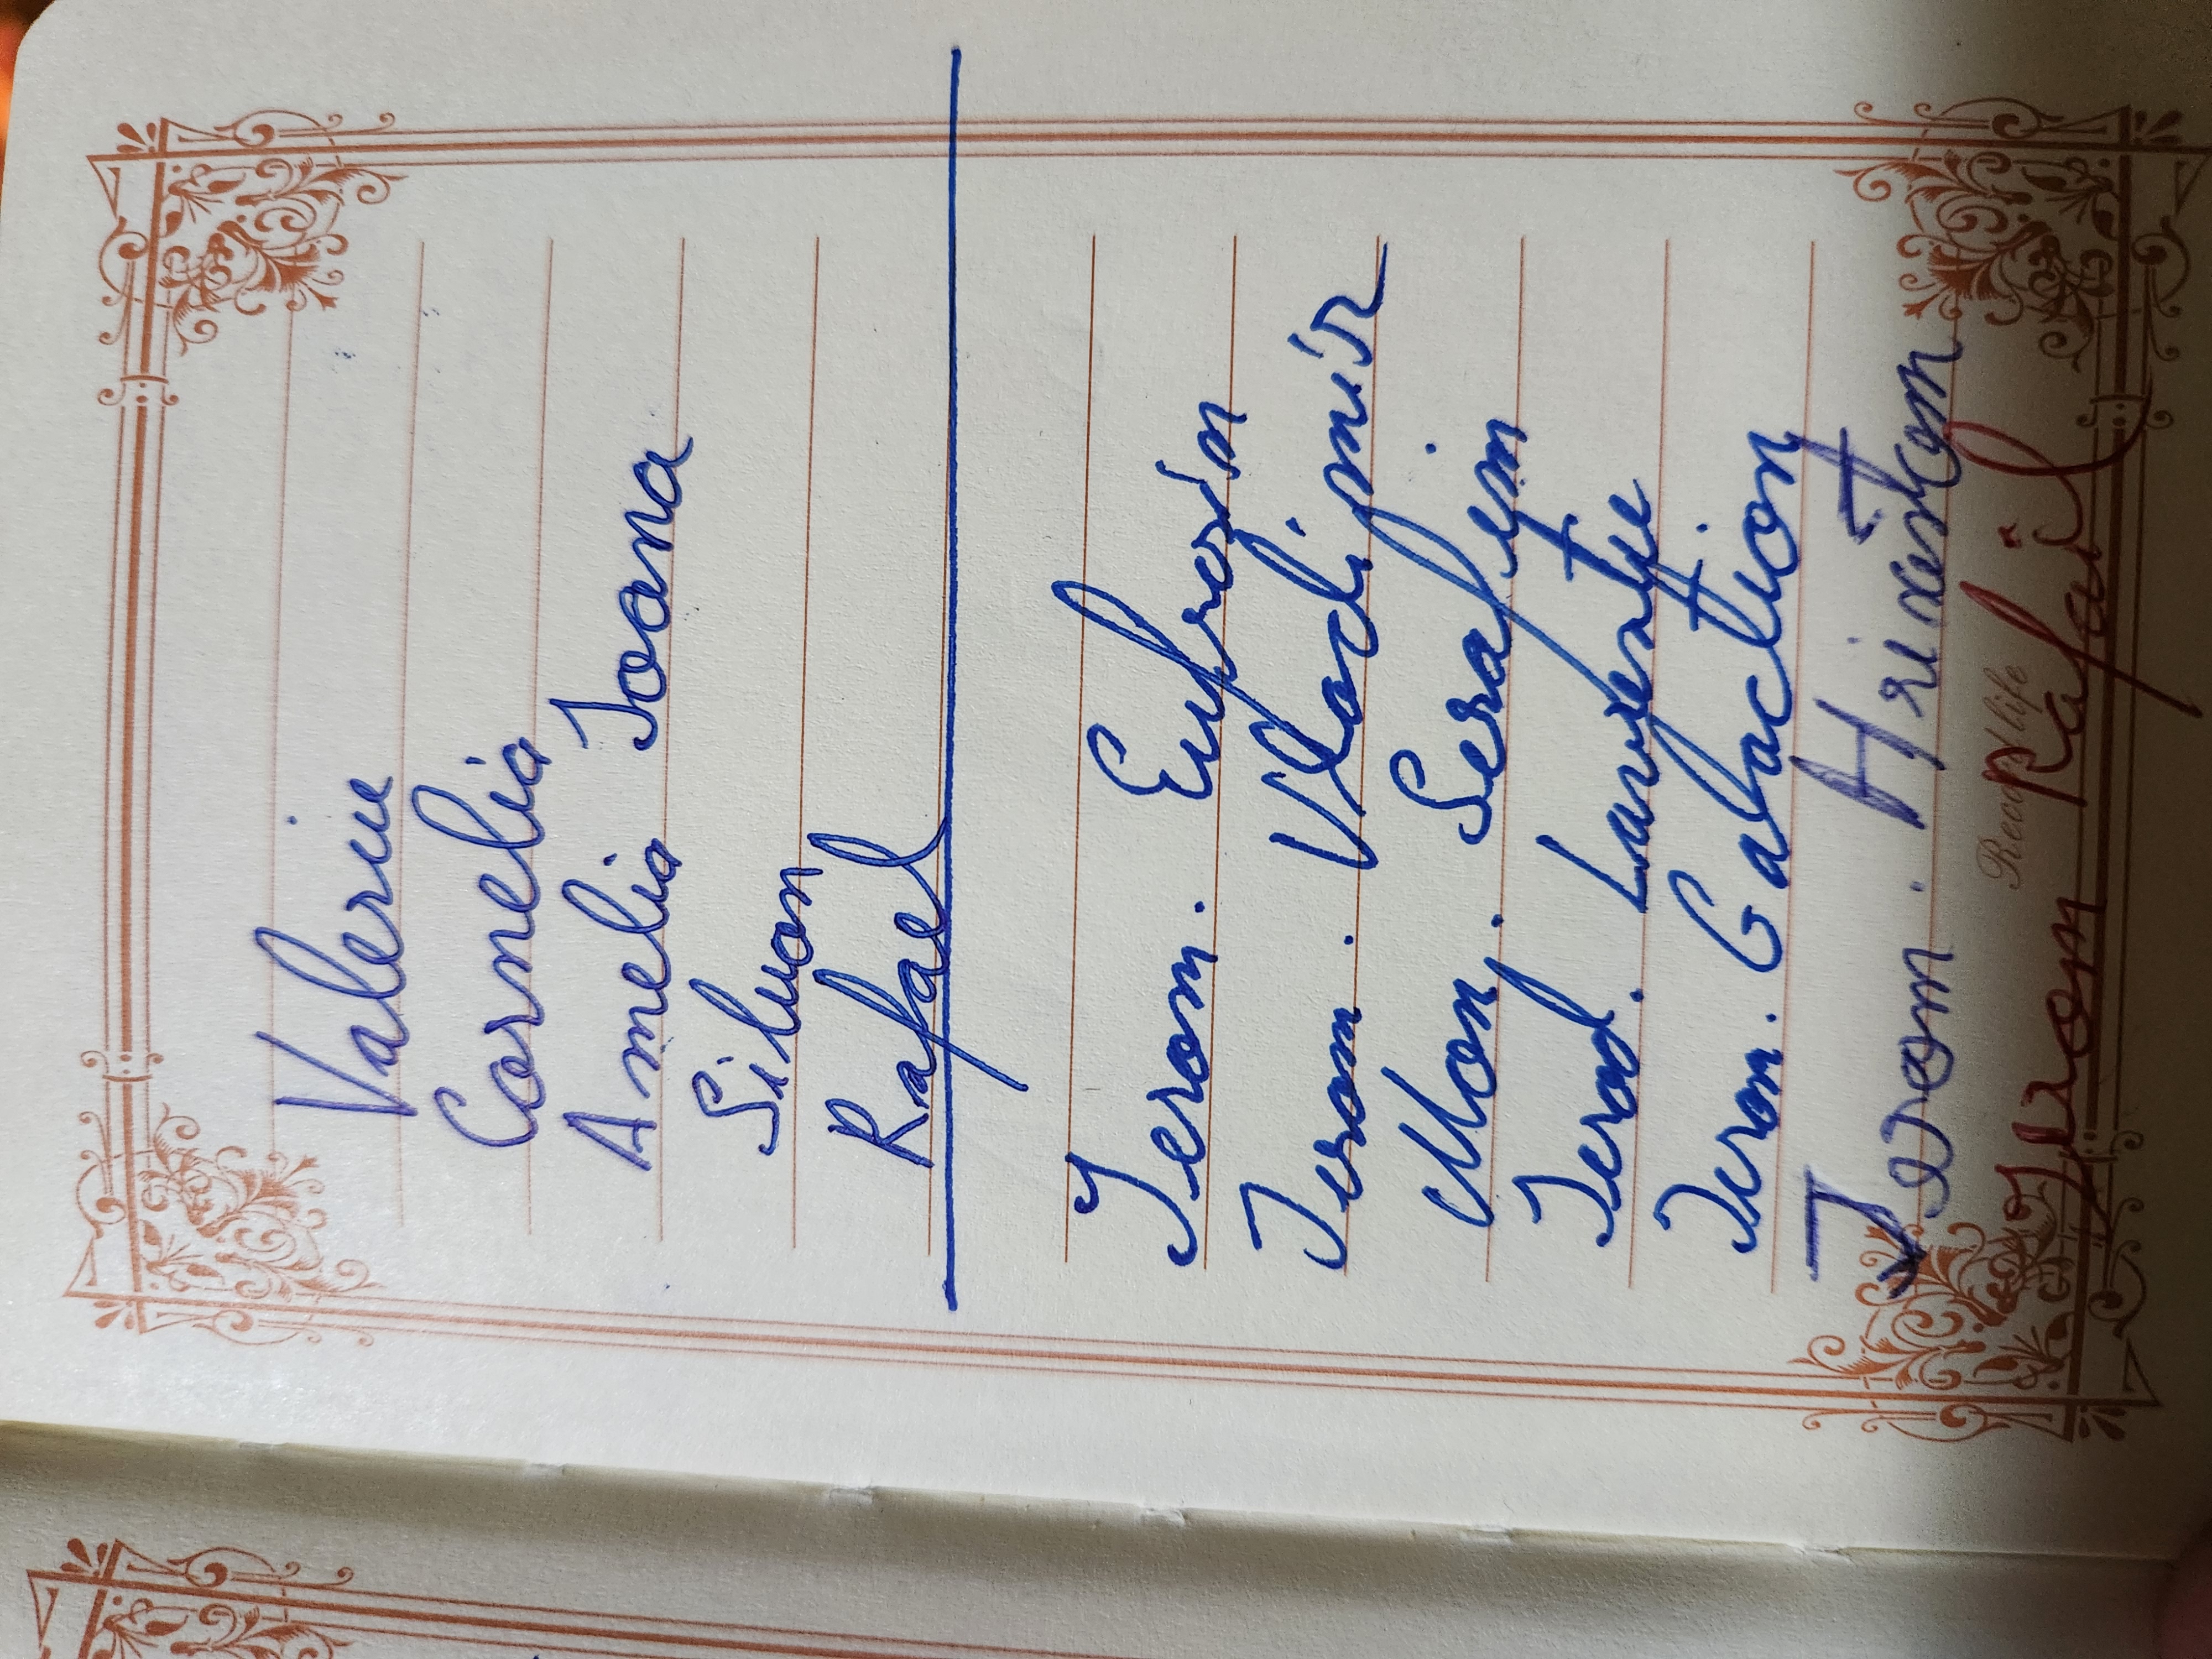 Valeriu
Cornelia
Amelia Ioana
Siluan
Rafael
Ierom. Eufrosin
Ierom. Vladimir
Mon. Serafim
Ierod. Lavrentie
Ierom. Galaction
Ierom. Hrisantom
Record life
Ierom Rafail